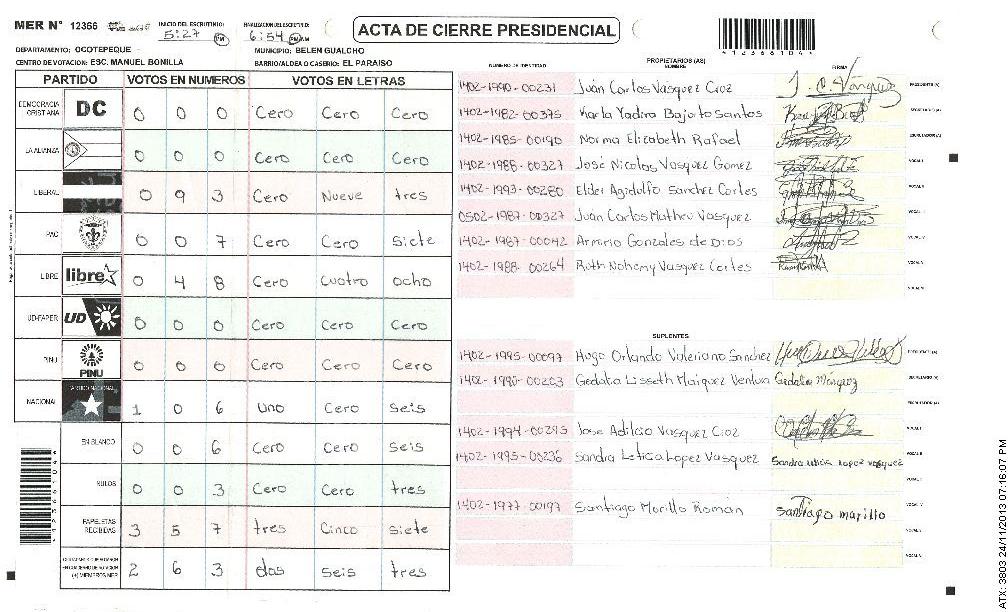 MER N° 12366
INICIO DEL ESCRUTINIO: 5:27 PM
FINALIZACION DEL ESCRUTINIO: 6:54 PM AM
ACTA DE CIERRE PRESIDENCIAL
*12366104*
DEPARTAMENTO: OCOTEPEQUE
MUNICIPIO: BELEN GUALCHO
CENTRO DE VOTACION: ESC. MANUEL BONILLA
BARRIO/ALDEA O CASERIO: EL PARAISO
PARTIDO VOTOS EN NUMEROS VOTOS EN LETRAS
DEMOCRACIA CRISTIANA DC 0 0 0 Cero Cero Cero
LA ALIANZA 0 0 0 Cero Cero Cero
LIBERAL 0 9 3 Cero Nueve tres
PAC 0 0 7 Cero Cero Siete
LIBRE libre 0 4 8 Cero Cuatro ocho
UD-FAPER UD 0 0 0 Cero Cero Cero
PINU PINU 0 0 0 Cero Cero Cero
NACIONAL PARTIDO NACIONAL 1 0 6 Uno Cero Seis
EN BLANCO 0 0 6 Cero Cero Seis
NULOS 0 0 3 Cero Cero tres
PAPELETAS RECIBIDAS 3 5 7 tres Cinco siete
(+) MIEMBROS MER 2 6 3 dos Seis tres
NUMERO DE IDENTIDAD PROPIETARIOS (AS) NOMBRE FIRMA
1402-1990-00231 Juan Carlos Vasquez Cioz PRESIDENTE (A)
1402-1982-00375 Karla Yadira Bajorto Santos SECRETARIO (A)
1402-1985-00190 Norma Elizabeth Rafael ESCRUTADOR (A)
1402-1988-00327 Jose Nicolas Vasquez Gomez VOCAL I
1402-1993-00280 Elder Agidolfo Sanchez Cortes VOCAL II
0502-1987-00327 Juan Carlos Matheu Vasquez
1402-1987-00042 Armirio Gonzales de Dios
1402-1988-00264 Ruth Nohemy Vasquez Cortes
SUPLENTES
1402-1995-00097 Hugo Orlando Valeriano Sanchez PRESIDENTE (A)
1402-1990-00203 Gedalia Lisseth Maiquez Ventura SECRETARIO (A)
ESCRUTADOR (A)
1402-1994-00295 Jose Adilcio Vasquez Cioz VOCAL I
1402-1995-00236 Sandra Leticia Lopez Vasquez Sandra Leticia Lopez Vasquez VOCAL II
1402-1977-00197 Santiago Morillo Roman Santiago marillo
ATX: 3803 24/11/2013 07:16:07 PM